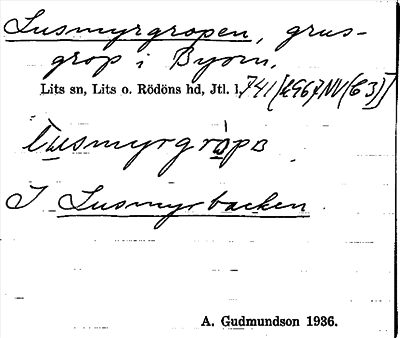 Lusmyrgropen, grus-
grop i Byom.
Lits sn, Lits o. Rödöns hd, Jtl. l. 741 [1967NV(C3)]
lusmyrgròpɒ
I Lusmyrbacken
A. Gudmundson 1936.